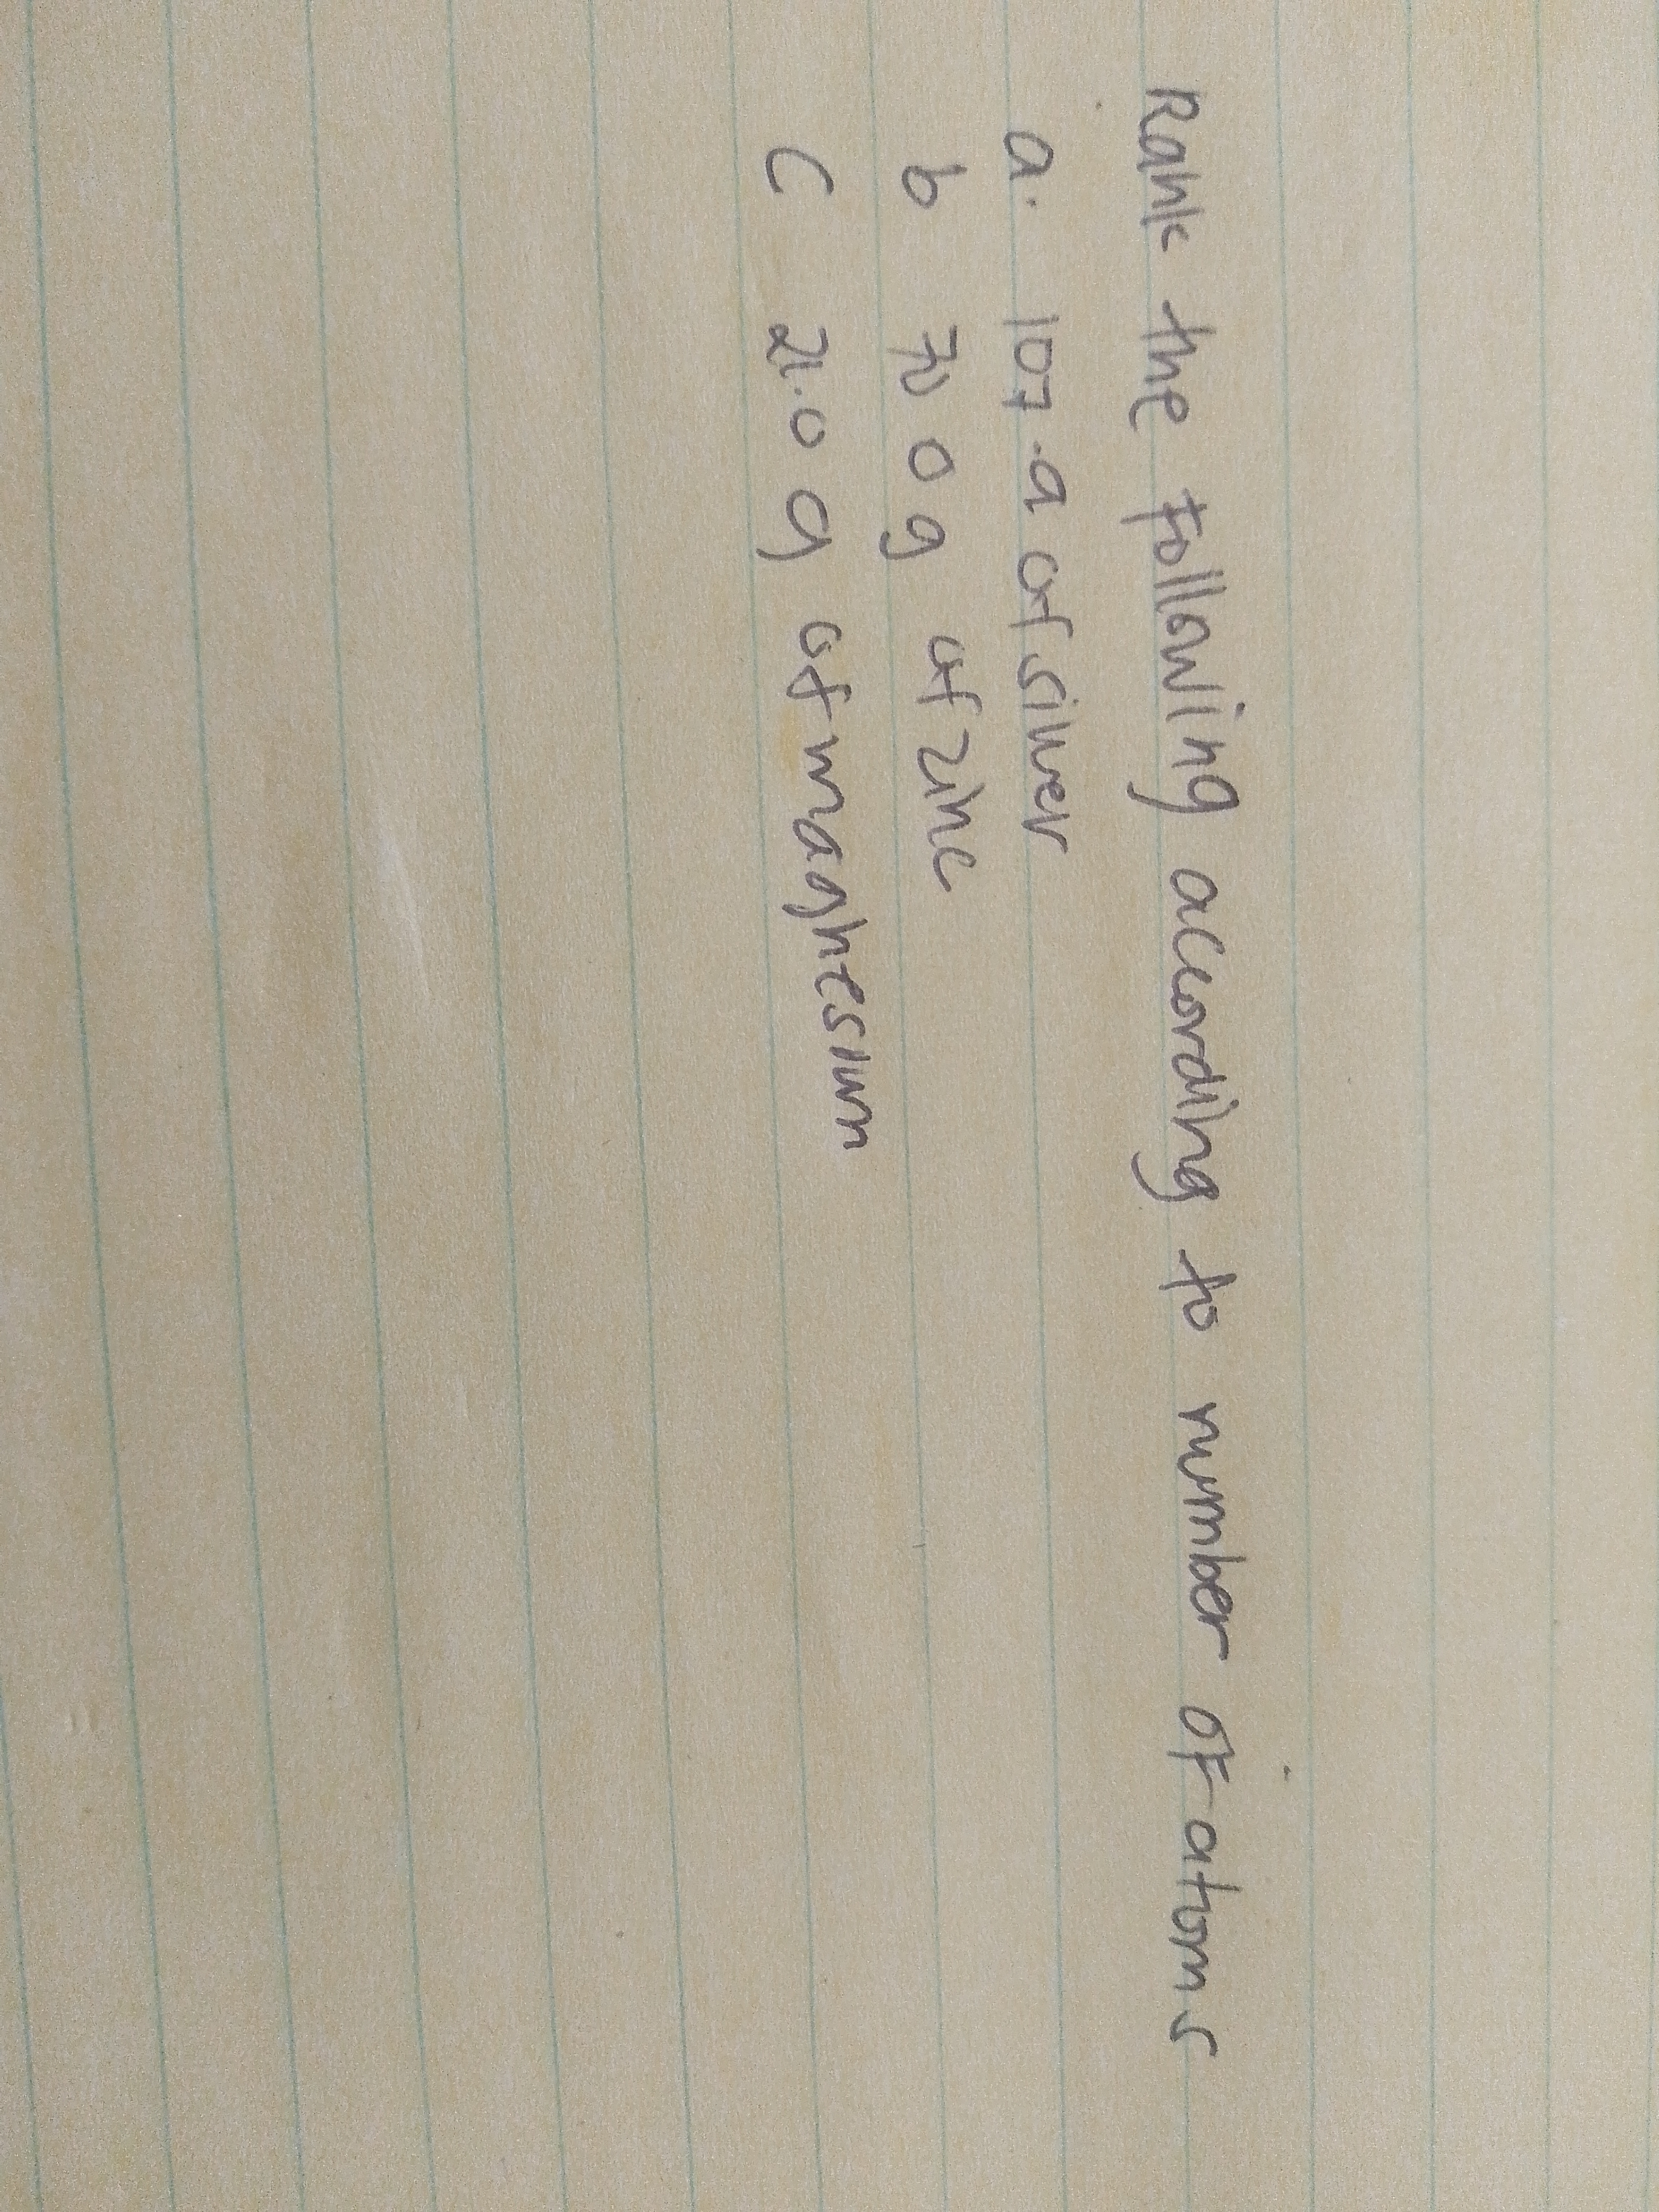 Rank the following according to number of atoms
a. 107.9 of silver
b 70 0 g of zinc
c 21.0 g of magnesium